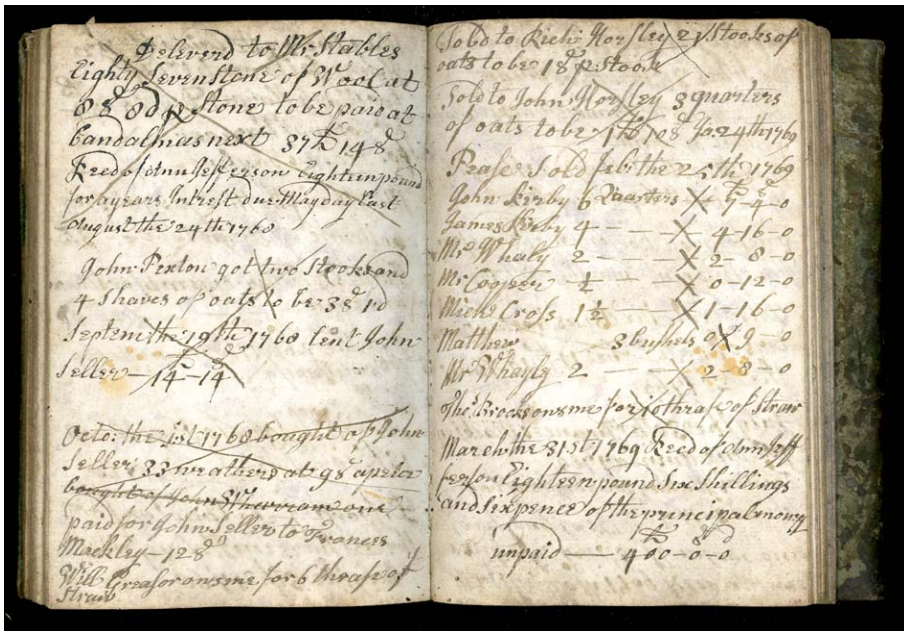 Deleverd to Mr Stables
Eighty Seven Stone of Wool at
8s 8d p Stone to be paid at
Candalmas next 37£ 14s
Reed of Ann Jefferson Eighteen pound
for a years Intrest due Mayday Last
August the 24th 1768
John Pexton got two Stooks and
4 Shaves of oats to be 3s 1d
Septem the 19th 1768 lent John
Seller — 14£ - 14s
Octor the 1st 1768 bought of John
Seller 33 weathers at 9s apeice
bought of John one
paid for John Seller to Frances
Mackley — 12s
Will Greasor ows me for 6 thrase of
Straw
Sold to Richr Horsley 21 Stooks of
oats to be 18 p Stook
Sold to John Horsley 3 quarters
of oats to be 1£ 10s Ja 24th 1769
Pease Sold feb the 25th 1769
John Kirby 6 Quarters X 7£ - 4s - 0
James Kirby 4 — — X 4 - 16 - 0
Mr Whaly 2 — — X 2 - 8 - 0
Mr Cooper ½ — — X 0 - 12 - 0
Mich Cross 1½ — — X 1 - 16 - 0
Matthew 3 bushels 0 X 9 - 0
Mr Whayly 2 — X 2 - 8 - 0
Tho Brocks ows me for 10 thrase of Straw
March the 31st 1769 Reed of Ann Jeff
ferson Eighteen pound Six Shillings
and Six pence of the principal mony
unpaid — 400£ - 0s - 0d